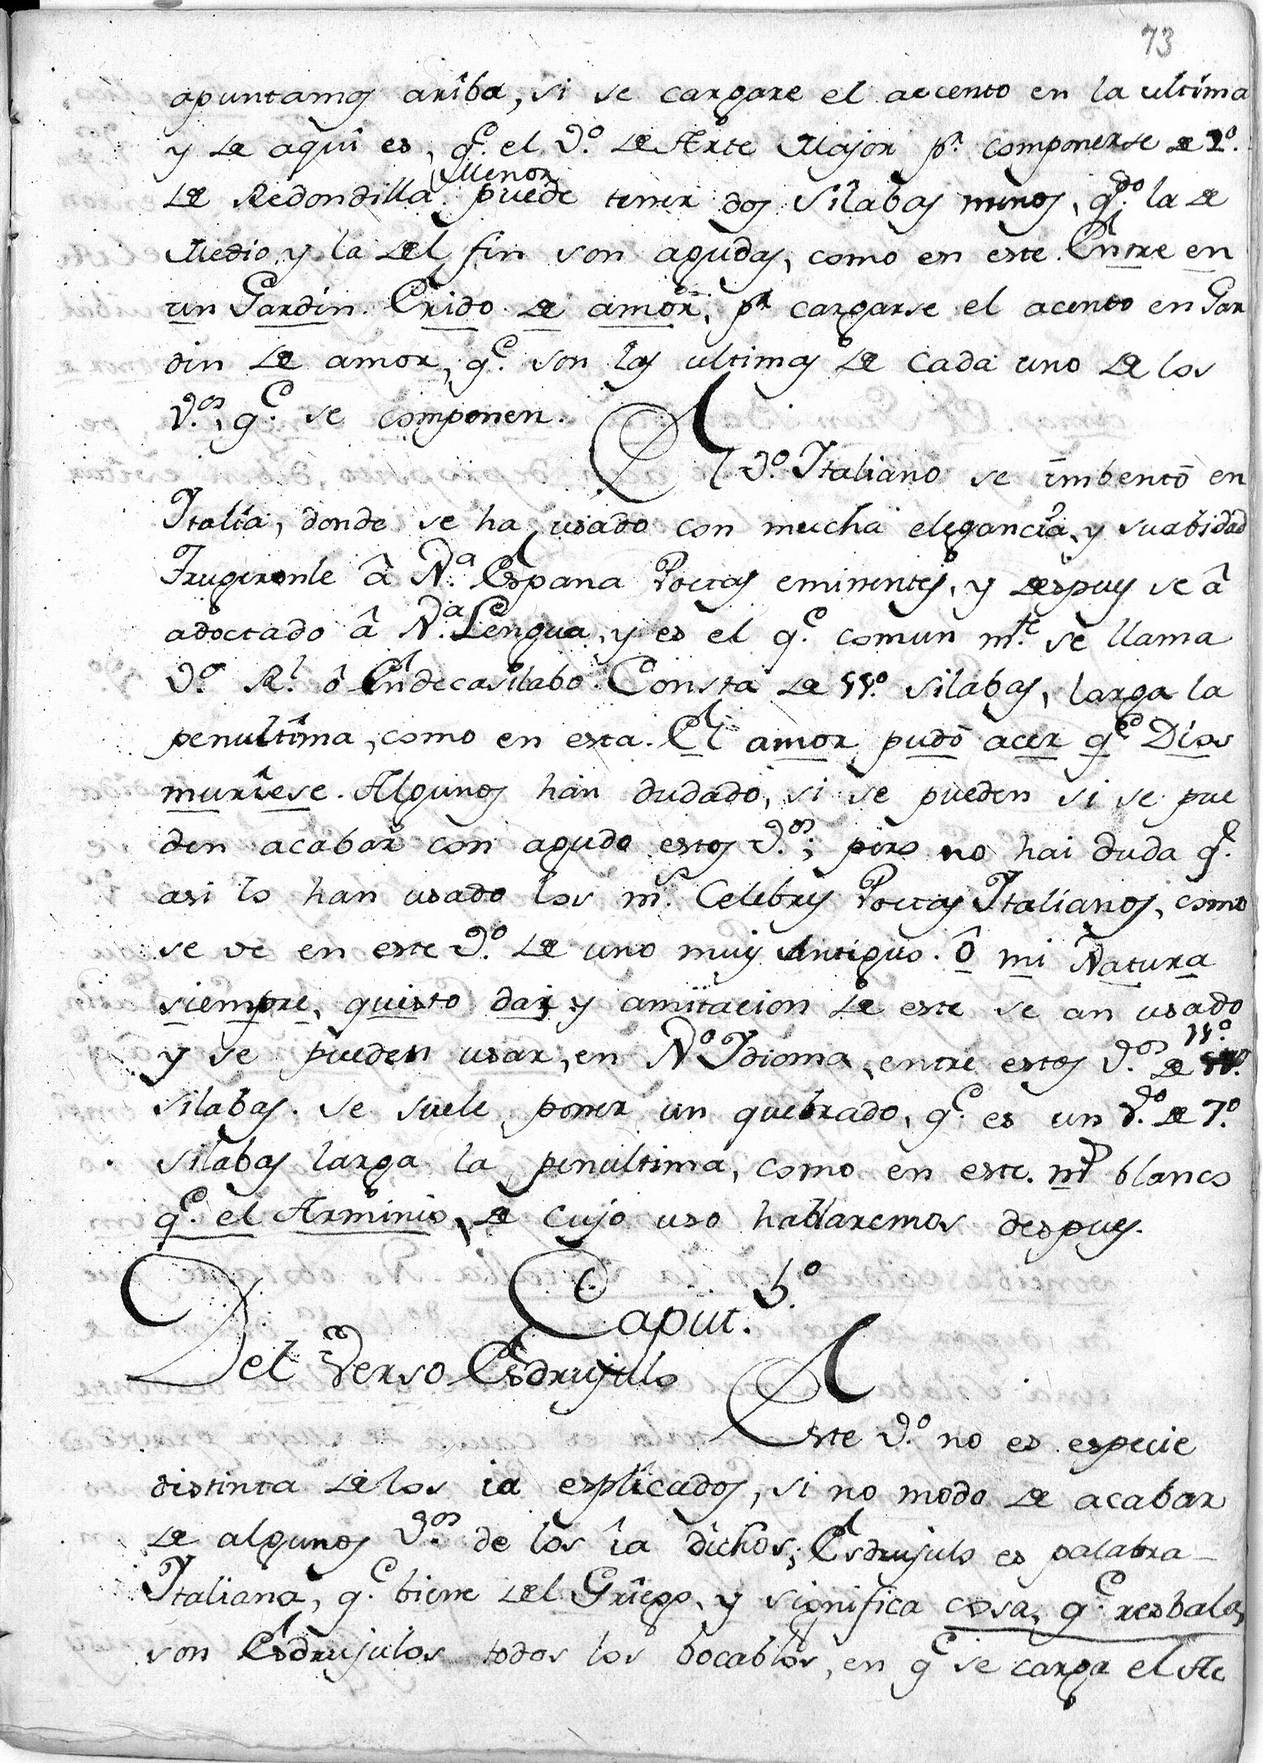 73
apuntamos arîba, si se cargare el accento en la ultima
y de aqui es, q.e el V.o de Arte Major p.r componerse de 2.o
Menor
de Redondilla puede tener dos Silabas menos, q.do la de
Medio y la del fin son agudas, como en este. Entre en
un Gardin Erido de amor, p.r cargarse el acento en Gar
din de amor, q.e son las ultimas de cada uno de los
V.os, q.e se componen.
El V.o Italiano se imbentô en
Italia, donde se ha usado con mucha elegancia, y suabidad
Trugeronle â N.a Espana Poetas eminentes, y despues se â
adoctado â N.a Lengua, y es el q.e comun m.te se llama
V.o R.l ô Endecasilabo. Consta de 11.o silabas, larga la
penultima, como en esta. El amor pudô acer q.e Dios
muriese. Algunos han dudado, si se pueden si se pue
den acabar con agudo estos V.os; pero no hai duda q.e
asi lo han usado los m.s Celebres Poetas Italianos, como
se ve en este V.o de uno muy Antiguo. Ô mi Natura
siempre, questo dai, y amitacion de este se an usado
y se pueden usar, en N.o Idioma, entre estos V.os de 11.o
silabas. se suele poner un quebrado, q.e es un V.o de 7.o
silabas larga la penultima, como en este. m.s blanco
q.e el Arminio, de cujo uso hablaremos despues.
Caput. 5.o
Del Verso Esdrujulo
Este V.o no es especie
distinta de los ia esplicados, si no modo de acabar
de algunos V.os de los ia dichos; Esdrujulo es palabra
Italiana, q.e biene del Griego, y significa cosa, q.e resbala,
son Esdrujulos todos los bocablos, en q.e se carga el Ac